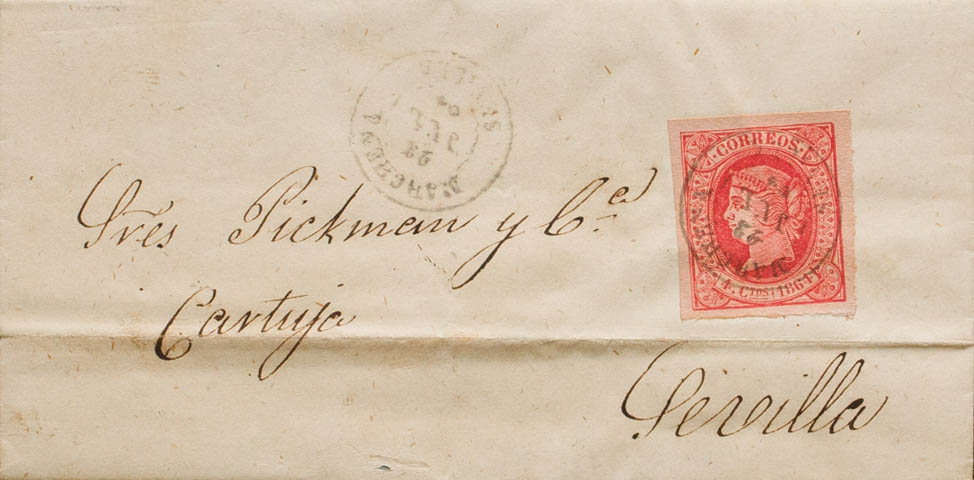 MARCHENA
23
JUL
64
SEVILLA
CORREOS.
4. CTOS 1864
23
JUL
Sres Pickman y Cª
Cartuja
Sevilla